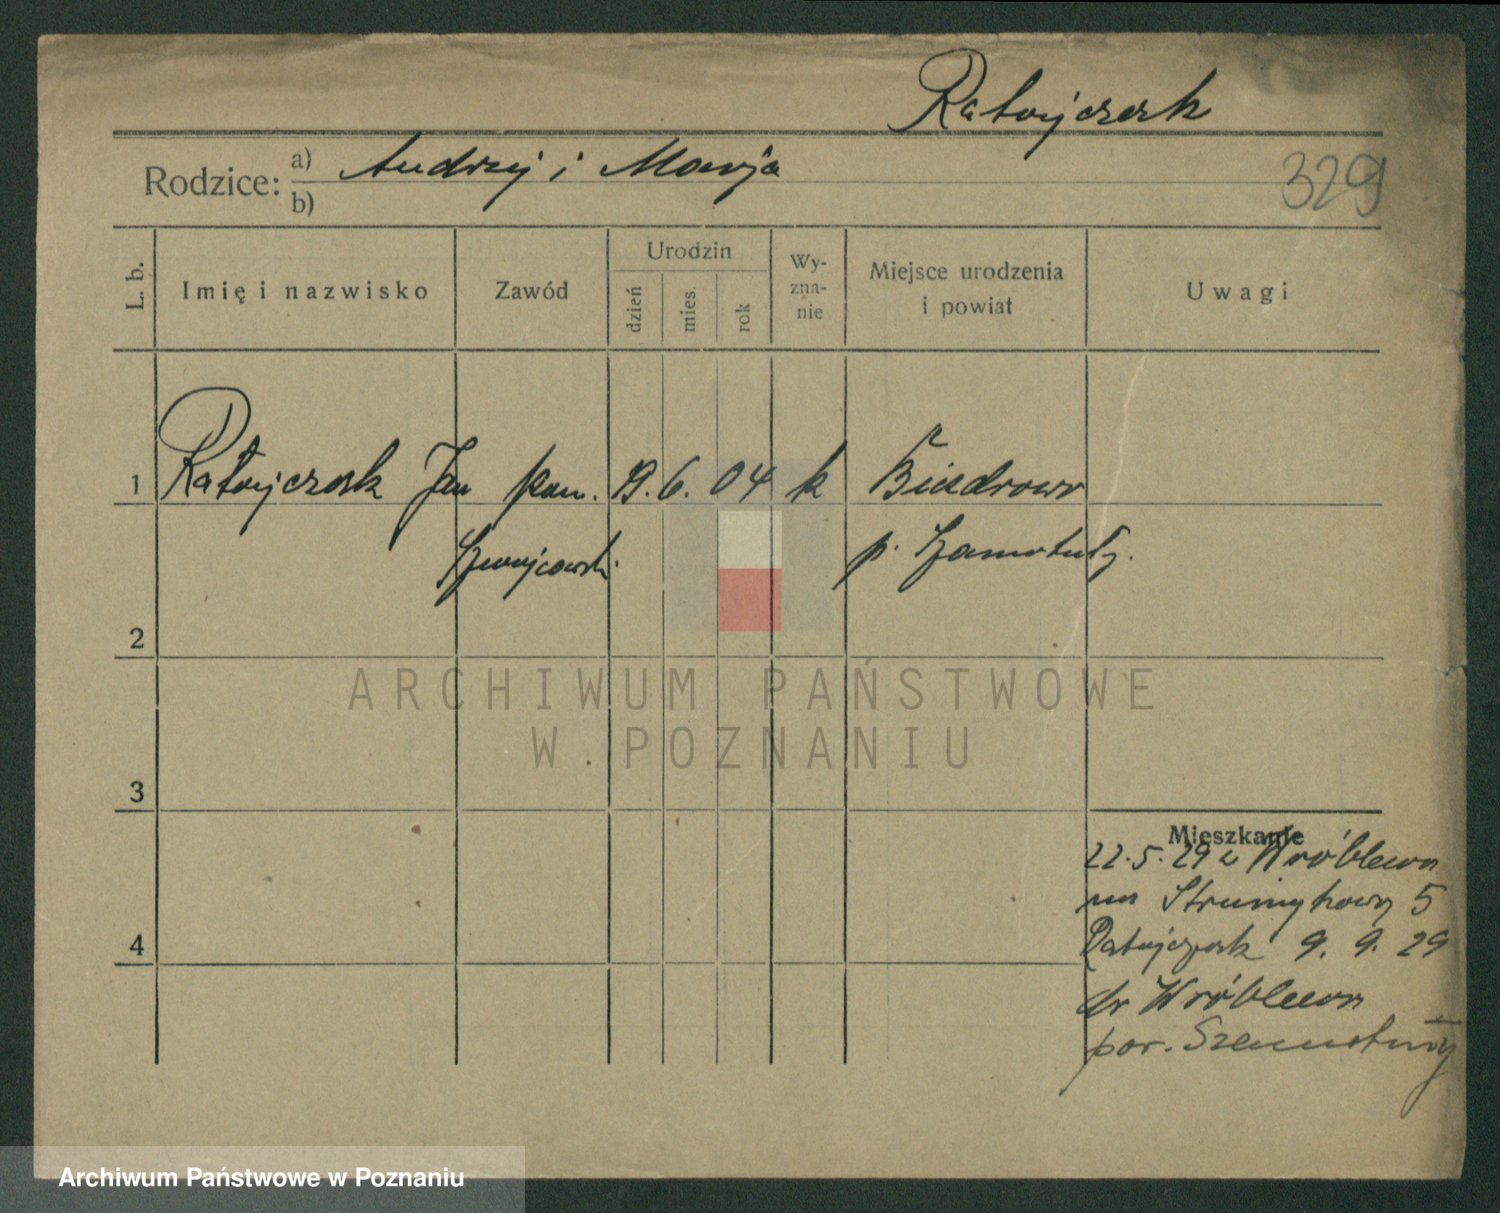 Ratajczak
Rodzice: a) Andrzej i Marja
b)
329
L. b.
Imię i nazwisko
Zawód
Urodzin
dzień
mies.
rok
Wy-
zna-
nie
Miejsce urodzenia
i powiat
Uwagi
1 Ratajczak Jan pom. 19. 6. 04 k Biezdrowo
p. Szamotuły.
2
3
4
Mieszkanie
22.5.29 z Wróblewa
na Strumykową 5
Ratajczak 9. 9. 29
do Wróblewa
pow. Szamotuły
ARCHIWUM PAŃSTWOWE
W POZNANIU
Archiwum Państwowe w Poznaniu